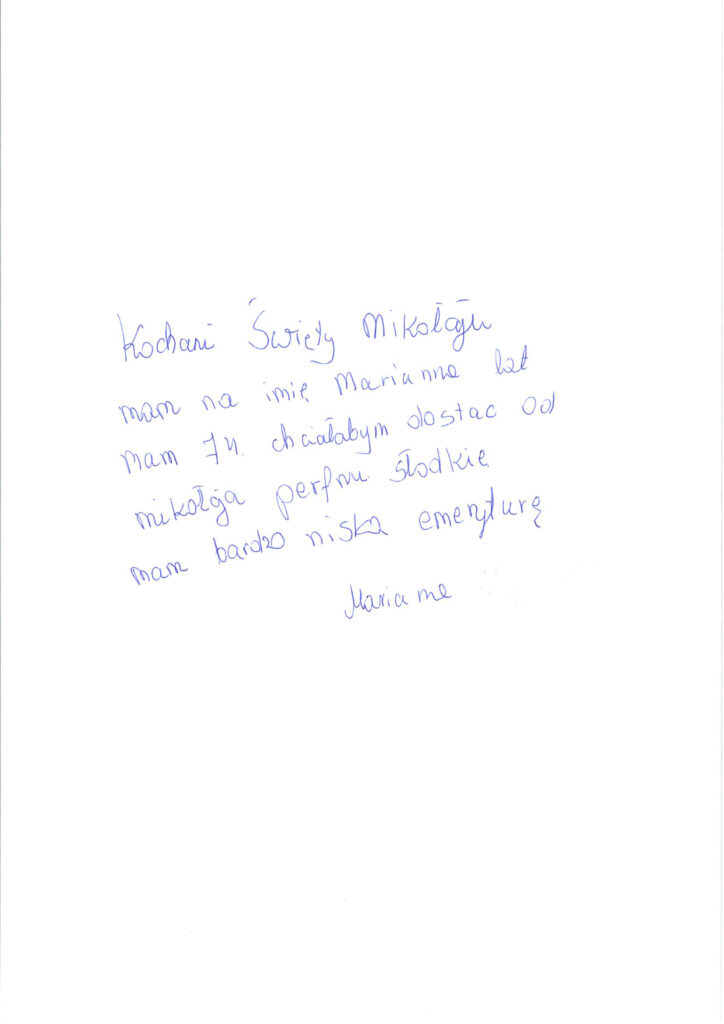 Kochani Święty Mikołaju
mam na imię Marianna lat
mam 74. chciałabym dostac od
mikołja perfmu słodkie
mam bardzo niska emeryturę
Marianna